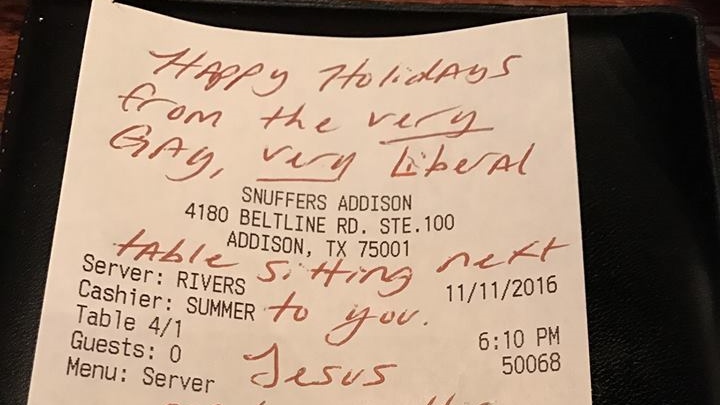 HAppy HolidAys
from the very
GAy, very LiberAl
SNUFFERS ADDISON
4180 BELTLINE RD. STE.100
ADDISON, TX 75001
tAble sitting next
Server: RIVERS 11/11/2016
Cashier: SUMMER to you.
Table 4/1 6:10 PM
Guests: 0 50068
Jesus
Menu: Server